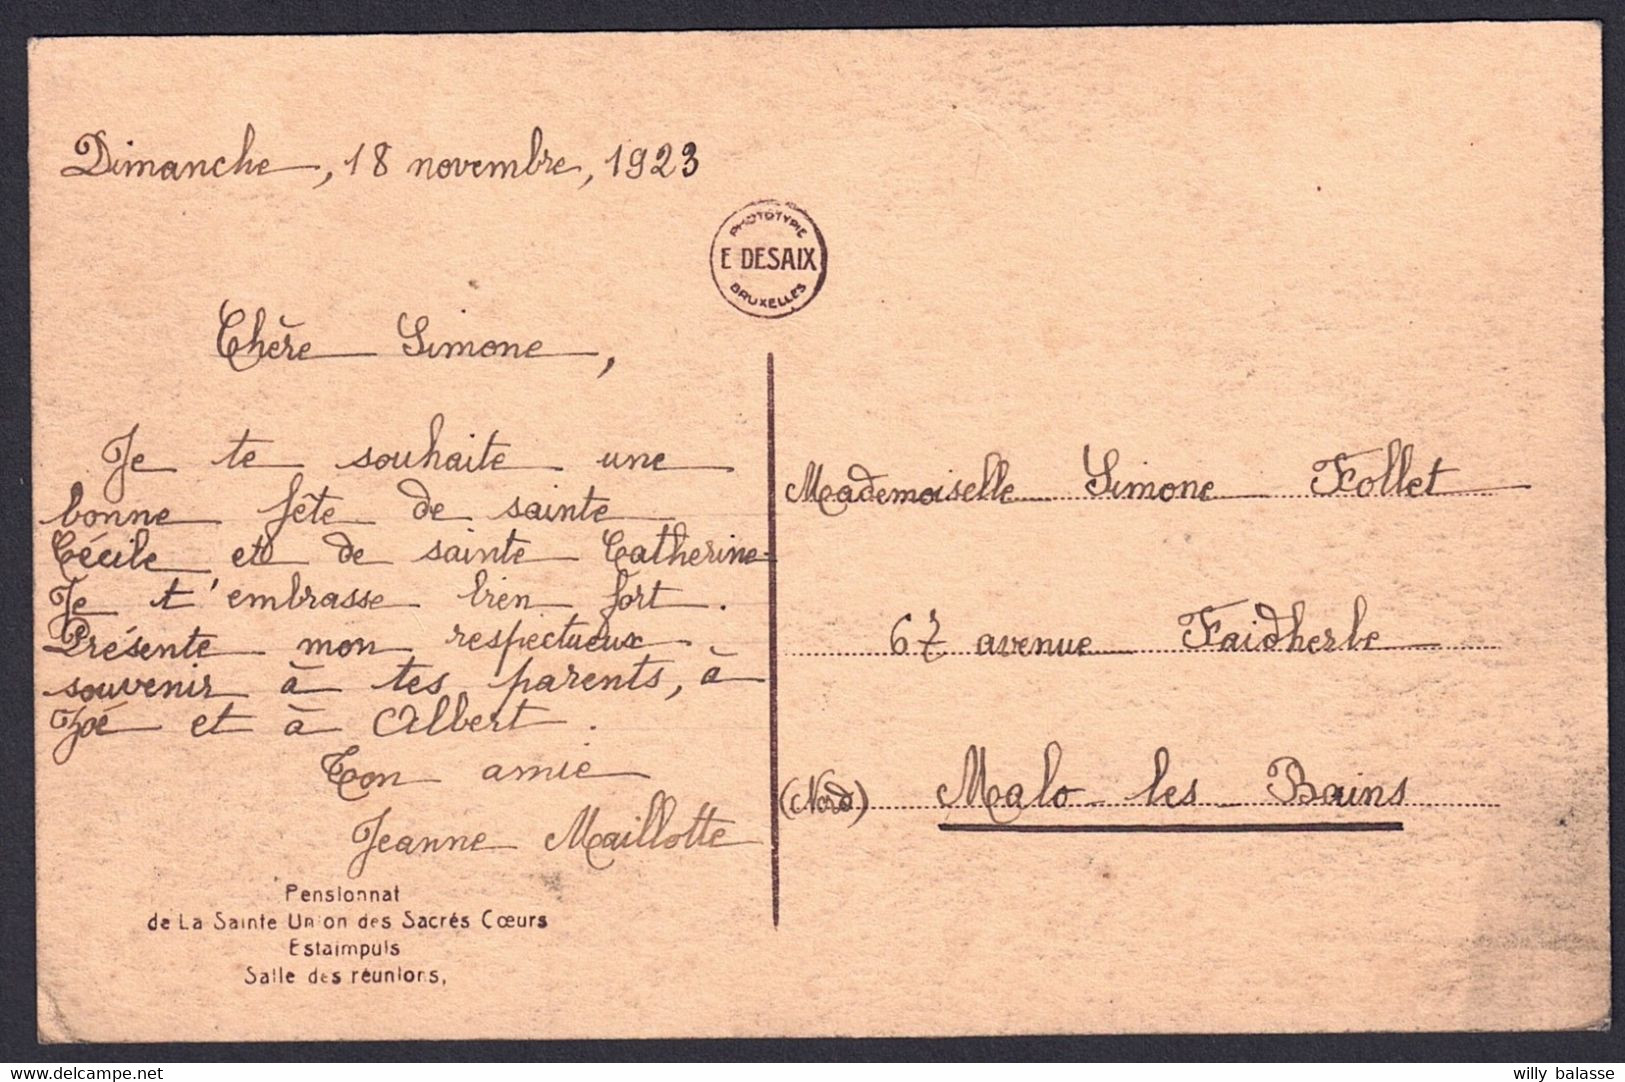 Dimanche, 18 novembre, 1923
PHOTOTYPIE
E DESAIX
BRUXELLES
Chère Simone,
Je te souhaite une
bonne fête de sainte
Cécile et de sainte Catherine
Je t'embrasse bien fort.
Présente mon respectueux
souvenir à tes parents, à
Zoé et à Albert.
Ton amie
Jeanne Maillotte
Pensionnat
de La Sainte Union des Sacrés Cœurs
Estaimpuis
Salle des réunions,
Mademoiselle Simone Follet
67 avenue Faidherbe
(Nord) Malo les Bains
willy balasse